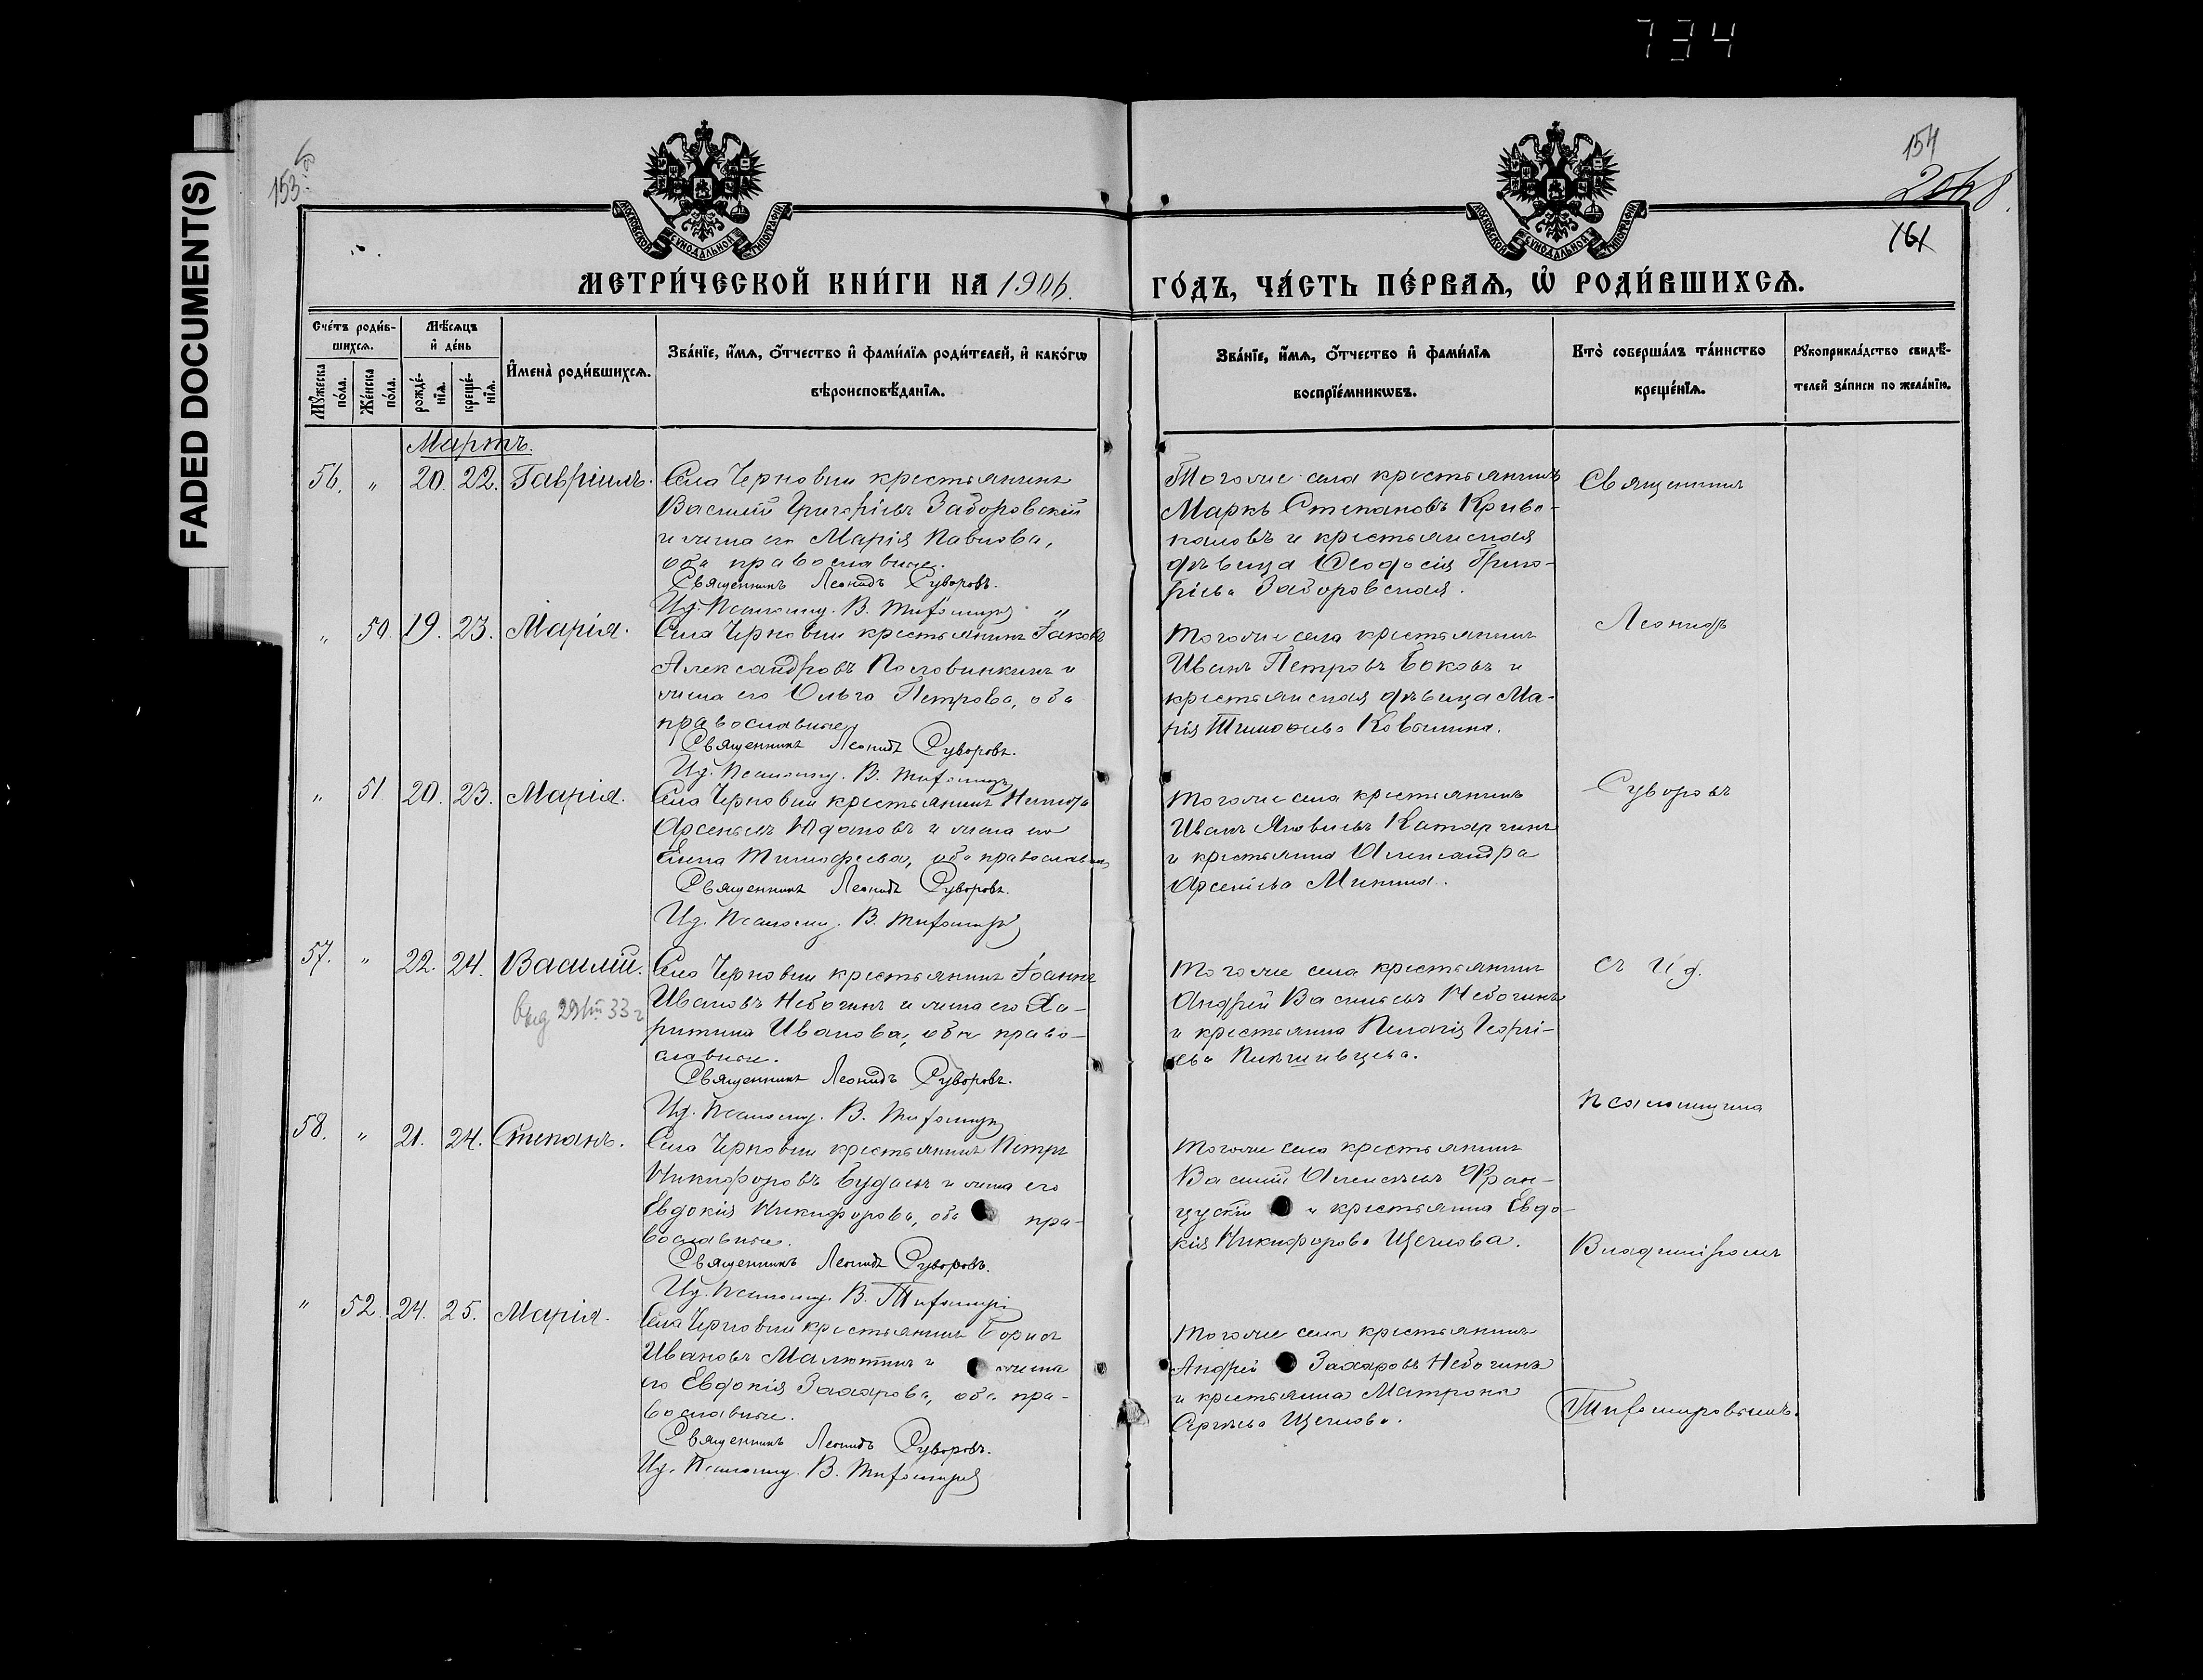 734
FADED DOCUMENT(S)
153 об
154
161
МОСКОВСКОЙ СѴНОДАЛЬНОЙ ТИПОГРАФІИ
МОСКОВСКОЙ СѴНОДАЛЬНОЙ ТИПОГРАФІИ
МЕТРИ́ЧЕСКОЙ КНИ́ГИ НА 1906.
ГО́ДЪ, ЧА́СТЬ ПЕ́РВАѦ, Ѡ҆ РОДИ́ВШИХСѦ.
Сче́тъ роди́в-
шихсѧ.
Мꙋ́жеска по́ла.
Же́нска по́ла.
Мѣ́сѧцъ
и҆ де́нь
рожде́-
нїѧ.
креще́-
нїѧ.
И҆мена̀ роди́вшихсѧ.
Зва́нїе, и҆́мѧ, ѻ҆́тчество и҆ фами́лїѧ роди́телей, и҆ како́гѡ
вѣроисповѣ́данїѧ.
Зва́нїе, и҆́мѧ, ѻ҆́тчество и҆ фами́лїѧ
воспрїе́мникѡвъ.
Кто̀ соверша́лъ та́инство
креще́нїѧ.
Рꙋкоприкла́дство свидѣ́-
телей за́писи по жела́нїю.
Мартъ.
56. " 20. 22. Гавріилъ.
Села Черновки крестьянинъ
Василій Григорьевъ Заборовскій
и жена его Марія Павлова,
оба православные.
Священникъ Леонидъ Суворовъ.
Ид. Псаломщ. В. Тифоміръ
Тогоже села крестьянинъ
Маркъ Степановъ Криво-
и крестьянская
дѣвица Ѳеодосія Григо-
рьева Заборовская.
Священникъ
" 50. 19. 23. Марія.
Села Черновки крестьянинъ Іаковъ
Александровъ Половинкинъ и
жена его Ольга Петрова, оба
православные
Священникъ Леонидъ Суворовъ.
Ид. Псаломщ. В. Тифоміръ
Тогоже села крестьянинъ
Иванъ Петровъ Боковъ и
крестьянская дѣвица Ма-
рія Тимоѳеева
Леонидъ
" 51 20. 23. Марія.
Села Черновки крестьянинъ
Арсеньевъ и жена его
Елена Тимофеева, оба православные
Священникъ Леонидъ Суворовъ.
Ид. Псаломщ. В. Тифоміръ
Тогоже села крестьянинъ
Иванъ Яковлевъ Катаргинъ
и крестьянка Александра
Арсеньева Минина.
Суворовъ
57. " 22. 24. Василій.
Села Черновки крестьянинъ Іоаннъ
Ивановъ Небогинъ и жена его Ха-
ритина Иванова, оба право-
славные.
Священникъ Леонидъ Суворовъ.
Ид. Псаломщ. В. Тифоміръ
Тогоже села крестьянинъ
Андрей Васильевъ Небогинъ
и крестьянка Пелагія Георгі-
ева
съ И. д.
58. " 21. 24. Степанъ.
Села Черновки крестьянинъ Петръ
Никифоровъ и жена его
Евдокія Никифорова, оба пра-
вославные.
Священникъ Леонидъ Суворовъ.
Ид. Псаломщ. В. Тифоміръ
Тогоже села крестьянинъ
Василій Алексѣевъ Фран-
цускій и крестьянка Евдо-
кія Никифорова Щеглова.
псаломщика
Владиміромъ
" 52. 24. 25. Марія.
Села Черновки крестьянинъ Борисъ
Ивановъ Малютинъ и жена
его Евдокія Захарова, оба пра-
вославные.
Священникъ Леонидъ Суворовъ.
Ид. Псаломщ. В. Тифоміръ
Тогоже села крестьянинъ
Андрей Захаровъ Небогинъ
и крестьянка Матрона
Сергѣева Щеглова.